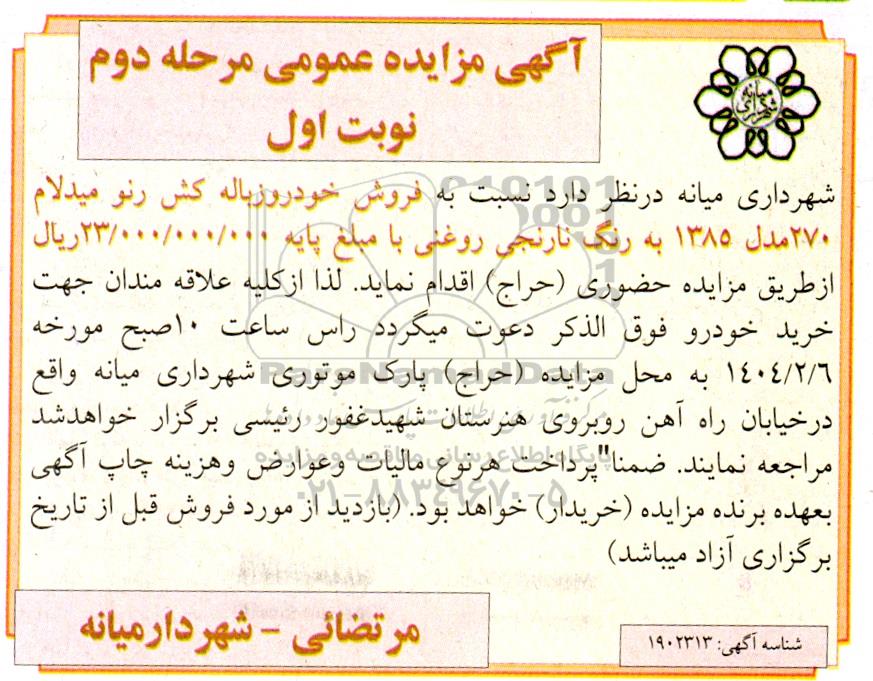 آگهی مزایده عمومی مرحله دوم
نوبت اول
میانه
شهرداری
شهرداری میانه درنظر دارد نسبت به فروش خودروزباله کش رنو میدلام
۲۷۰مدل ۱۳۸۵ به رنگ نارنجی روغنی با مبلغ پایه ۲۳/۰۰۰/۰۰۰/۰۰۰ریال
ازطریق مزایده حضوری (حراج) اقدام نماید. لذا ازکلیه علاقه مندان جهت
خرید خودرو فوق الذکر دعوت میگردد راس ساعت ۱۰صبح مورخه
۱۴۰۴/۲/۶ به محل مزایده (حراج) پارک موتوری شهرداری میانه واقع
درخیابان راه آهن روبروی هنرستان شهیدغفور رئیسی برگزار خواهدشد
مراجعه نمایند. ضمنا"پرداخت هرنوع مالیات وعوارض وهزینه چاپ آگهی
بعهده برنده مزایده (خریدار) خواهد بود. (بازدید از مورد فروش قبل از تاریخ
برگزاری آزاد میباشد)
مرتضائی - شهردارمیانه
شناسه آگهی: ۱۹۰۲۳۱۳
ParsNamadData
پایگاه اطلاع رسانی مناقصه و مزایده
۰۲۱-۸۸۳۴۹۶۷۰-۵